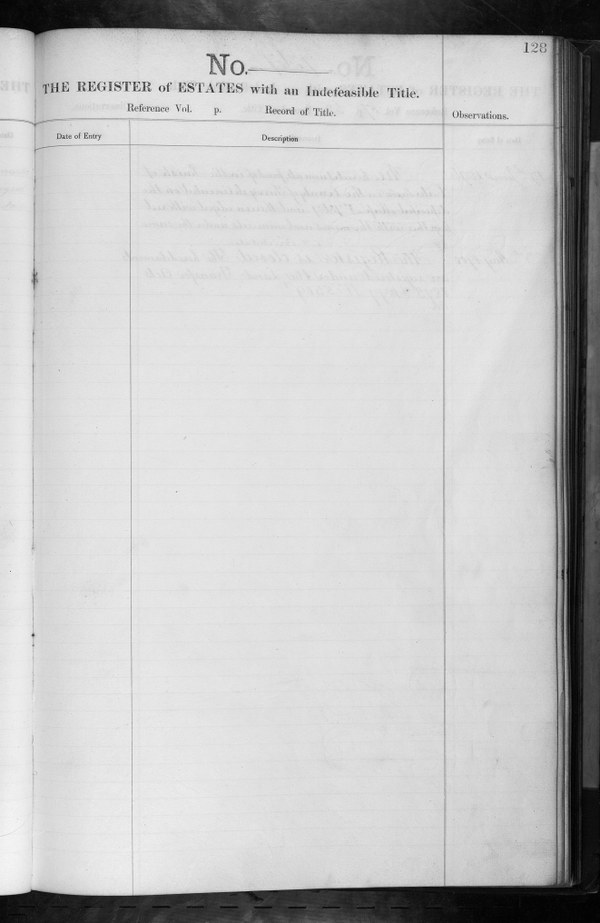 128
No.
THE REGISTER of ESTATES with an Indefeasible Title.
Reference Vol. p. Record of Title.
Observations.
Date of Entry
Description